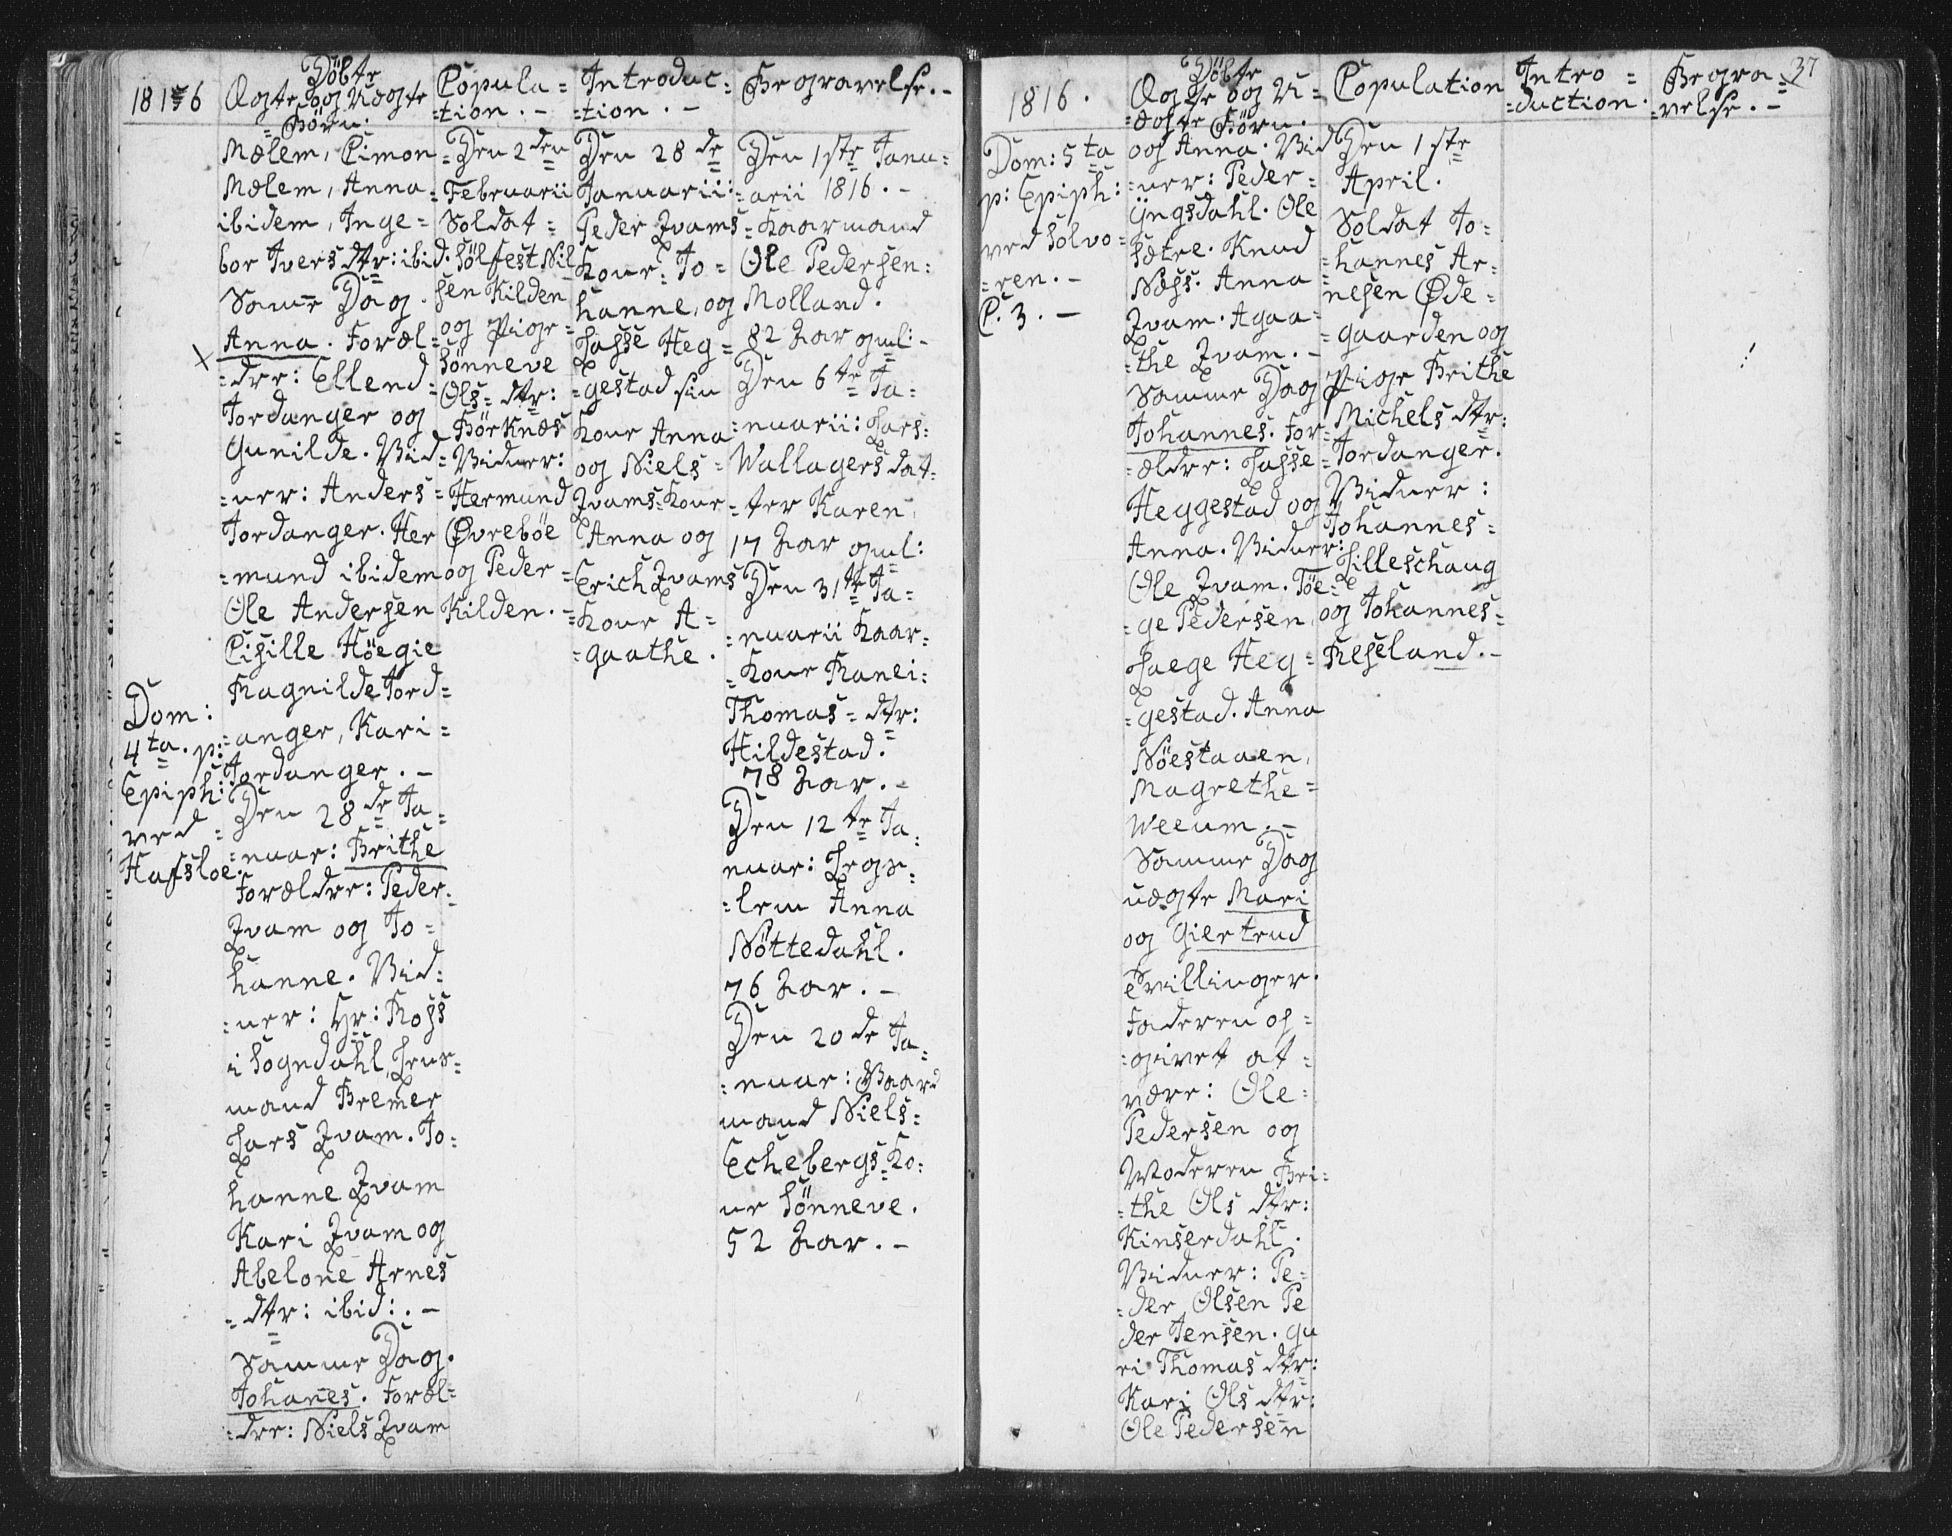 1816
Døbte
Ægte og Uægte
Børn.
Mælem, Cimon
Mælem, Anna
ibidem, Inge=
bor Ivers dtr: ibid.
Samme Dag.
Anna. Foræl=
=dre: Ellend
Jordanger og
Gunilde. Vid=
=ner: Anders
Jordanger. Her
=mund ibidem
Ole Andersen
Cisille Høegie
Ragnilde Jord=
=anger, Kari=
Jordanger. -
Dom:
4ta. p:
Epiph:
ved
Hafsloe.
Den 28de Ja=
=nuar: Brithe
Forældre: Peder
Qvam og Jo=
hanne. Vid=
=ner: Hr: Ross
i Sogndahl, Lens=
mand Bremer
Lars Qvam. Jo=
hanne Qvam
Kari Qvam og
Abelone Arnes
=dtr: ibid:. -
Samme Dag.
Johanes. Foræl=
=dre: Niels Qvam
Copula=
=tion. -
Den 2den
Februarii
Soldat
Sølfest Nil
sen Kilden
og Pige
Sønneve
Ols= dtr:
Børknæs
Vidner:
Hermund
Øvrebøe
og Peder
Kilden.
Introduc=
=tion. -
Den 28de
Januarii:
Peder Qvams
Kone: Jo=
hanne, og
Lasse Heg=
=gestad sin
Kone Anna
og Niels
Qvams Kone
Anna og
Erich Qvams
=Kone A=
=gaathe.
Begravelse. -
Den 1ste Janu=
=arii 1816. -
Kaarmand
Ole Pedersen
Molland.
82 Aar gml: -
Den 6te Ja=
=nuarii: Lars
Wallagers dat=
=ter Karen,
17 Aar gml:
Den 31te Ja=
=nuarii Kaar=
=Kone Ranei
Thomas= dtr:
Hildestad.
78 Aar. -
Den 12te Ja=
nuar: Lege=
=lem Anna
Nøttedahl.
76 Aar. -
Den 20de Ja=
=nuar: Gaard
mand Niels
Echebergs Ko=
ne Sønneve.
52 Aar. -
37
1816.
Dom: 5ta
p: Epiph:
ved Solvo=
=ren. -
C. 3. -
Døbte
Ægte og U=
=ægte Børn.
og Anna. Vid
=ner: Peder
Yngsdahl. Ole
Sætre. Knud
Næss. Anna
Qvam. Agaa=
=the Qvam. -
Samme Dag
Johannes. For=
=ældre: Lasse
Heggestad og
Anna. Vidner:
Ole Qvam. Tøe=
=ge Pedersen,
Laege Heg=
=gestad. Anna
Nøestaaen,
Magrethe
Weeum. -
Samme Dag
uægte Mari
og Giertrud
Tvillinger.
Faderen op=
=givet at
være: Ole
Pedersen og
Moderen Bri=
=the Ols dtr:
Kinserdahl.
Vidner: Pe=
=der Olsen Pe
der Jensen. Gu
ri Thomas dtr:
Kari Ols dtr:
Ole Pedersen
Copulation
Den 1ste
April.
Soldat Jo=
=hannes Ar=
nesen Øde=
=gaarden og
Pige Brithe
Michels dtr:
Jordanger.
Vidner:
Johannes
Lilleschaug
og Johannes
Reseland. -
Intro=
=duction.
Begra=
=velse. -